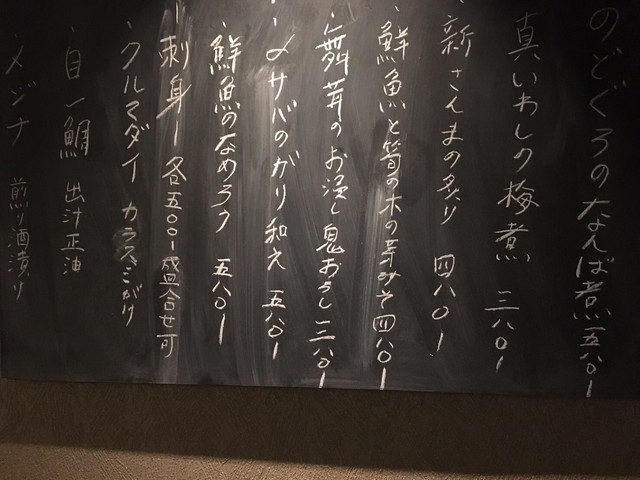 のどぐろのなんば煮 一五八〇ー
真いわしの梅煮 三八〇ー
・新さんまの炙り 四八〇ー
・鮮魚と筍の木の芽みそ 四八〇ー
・舞茸のお浸し 鬼おろし 三八〇ー
・〆サバのがり和え 五八〇ー
・鮮魚のなめろう 五八〇ー
刺身ー 各五〇〇ー 盛合せ可
・クルマダイ カラスミがけ
・自一鯛 出汁正油
・メジナ 煎り酒漬け